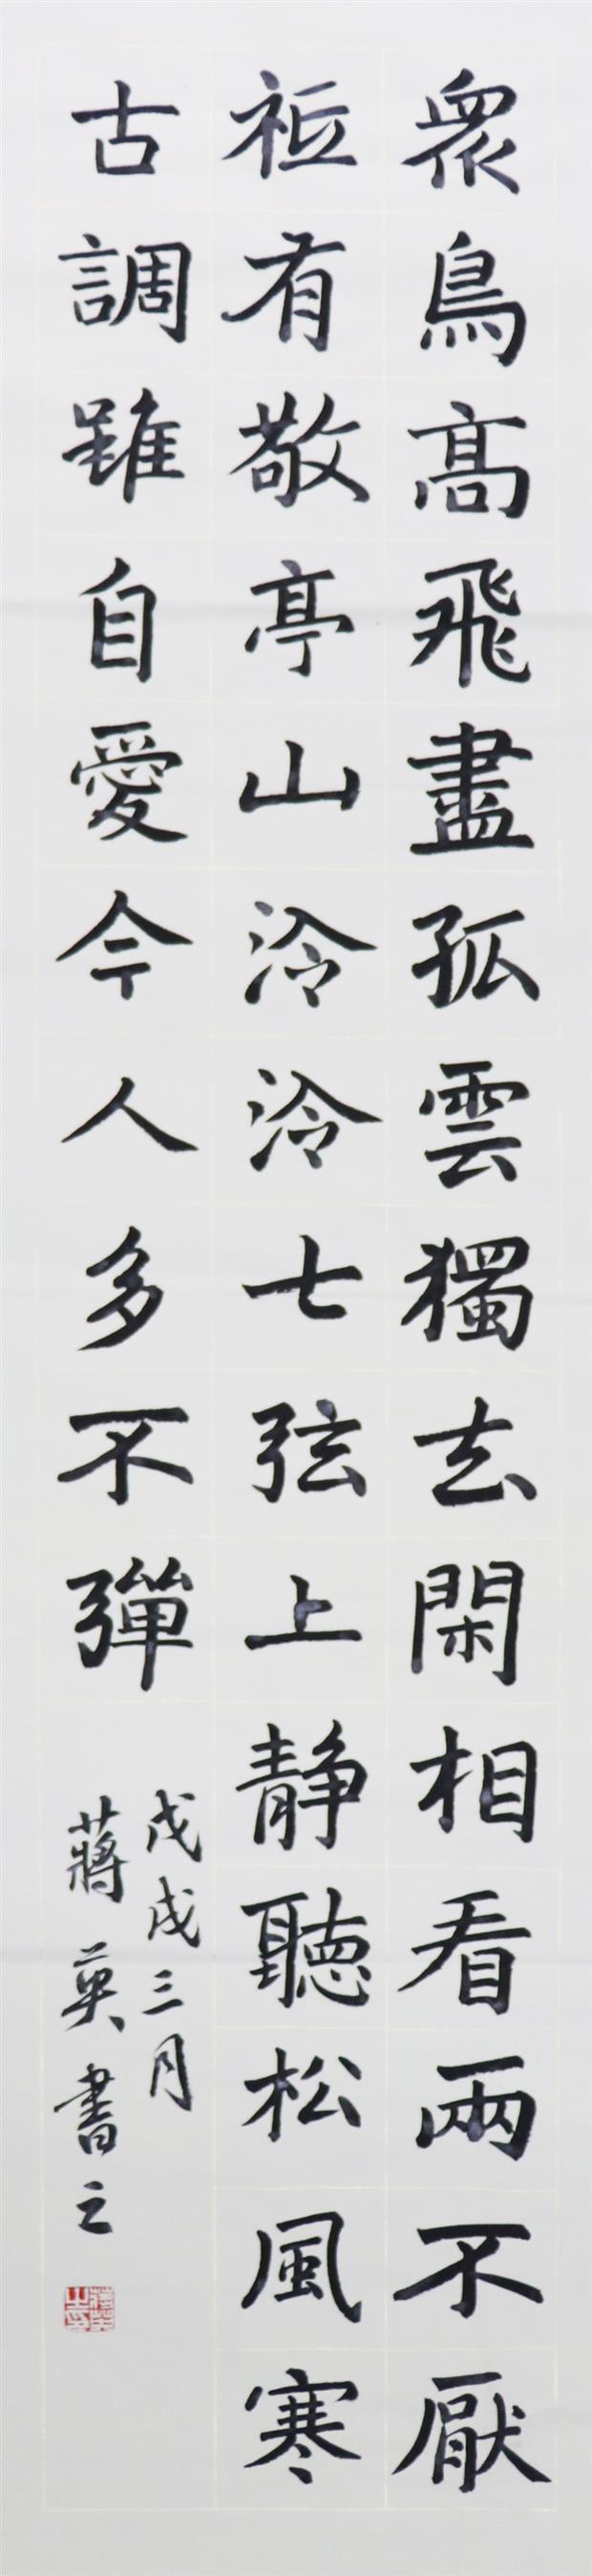 衆鳥高飛盡孤雲獨去閑相看兩不厭
祗有敬亭山泠泠七弦上静聽松風寒
古調雖自愛今人多不彈
戊戌三月
蔣英書之